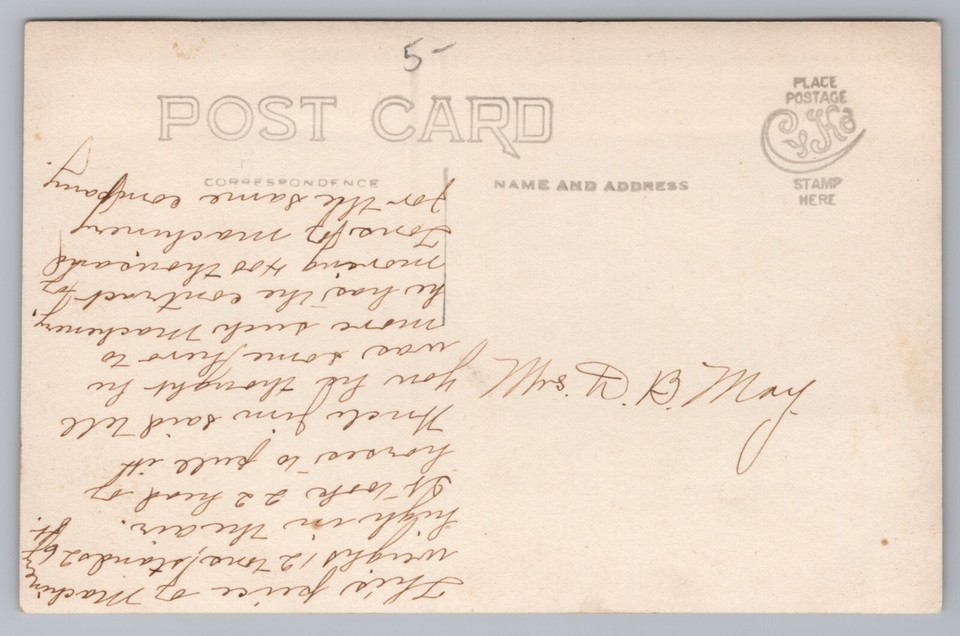 5-
POST CARD
PLACE
POSTAGE
CYKO
STAMP
HERE
CORRESPONDENCE
NAME AND ADDRESS
This peice of Machinery
weighs 12 tons, stands 26 ft.
high in the air.
It took 22 head of
horses to pull it
Uncle Jim said tell
you he thought he
was some hero to
move such Machinery.
he has the contract for
moving 400 thousand
Tons of machinery
for the same company.
Mrs. D. B. May